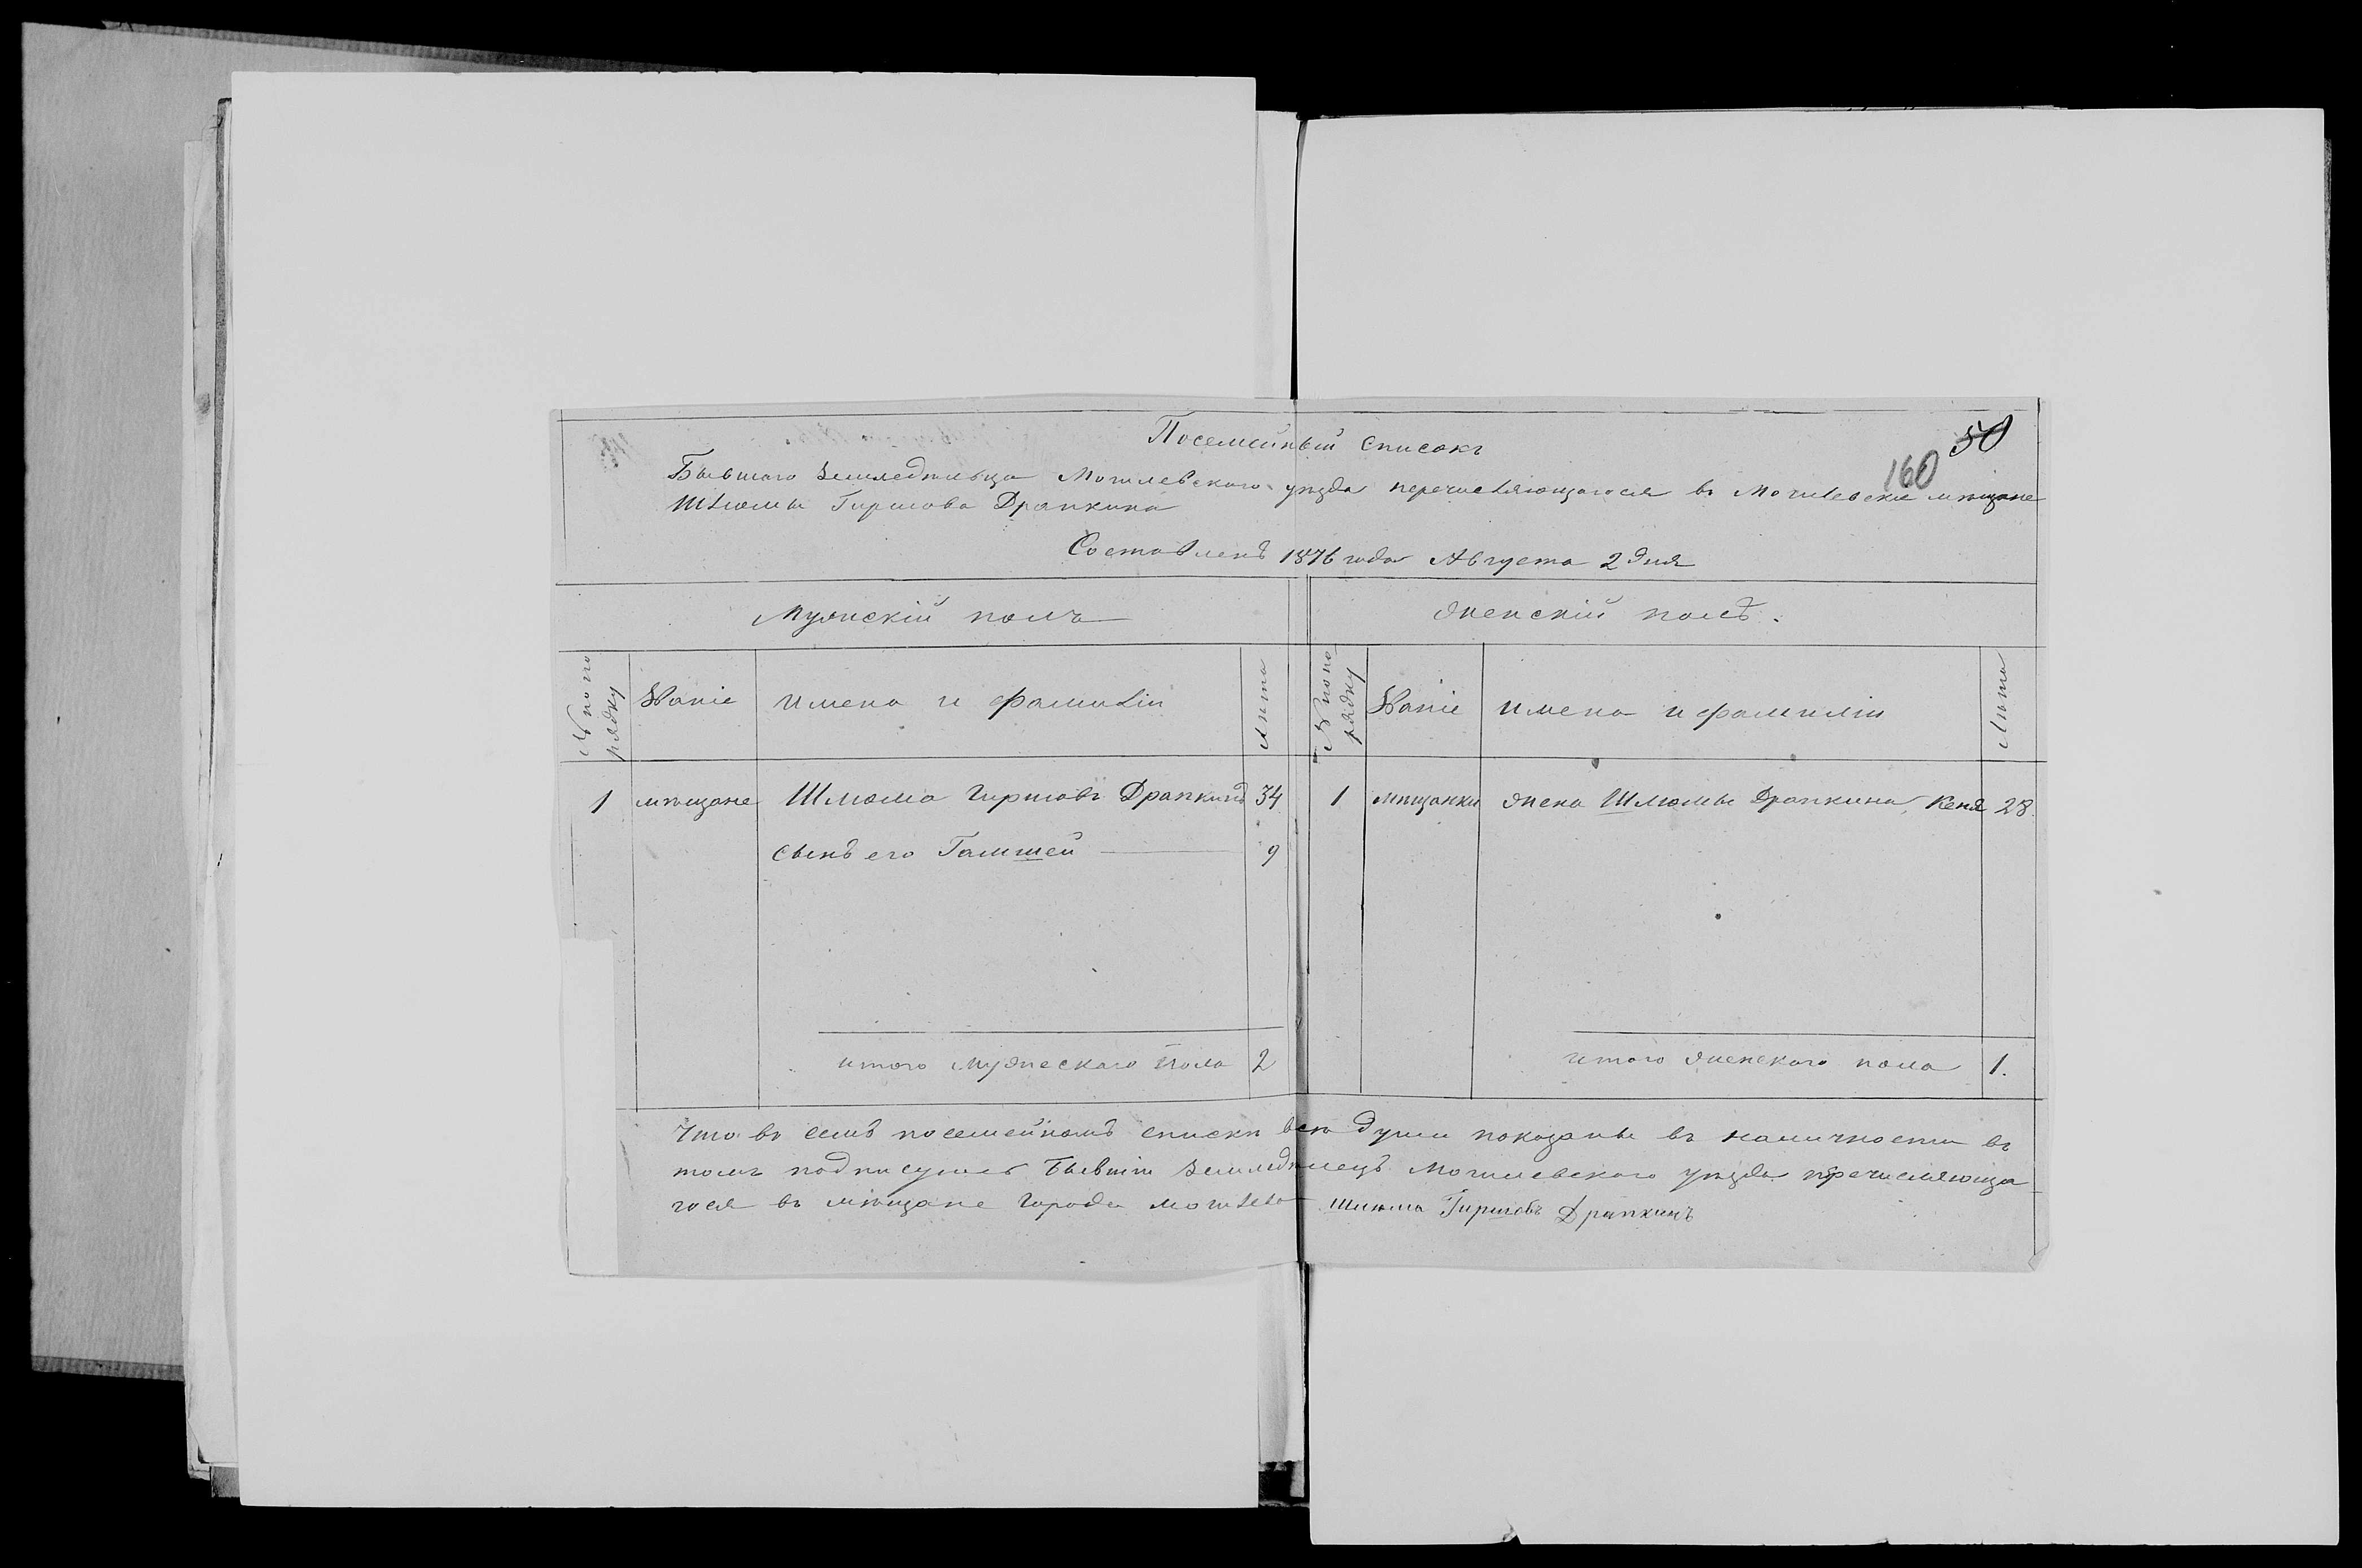 Посемейный списокъ
50
160
Бывшаго Земледѣльца Могилевскаго уѣзда перечисляющагося въ Могилевскіе мѣщане
Шлюмы Гиршова Драпкина
Составленъ 1876 года Августа 2 дня
Мужскій полъ
Женскій полъ.
№ по по
рядку
Званіе
Имена и фамиліи
Лѣта
№ по по
рядку
Званіе
Имена и фамиліи
Лѣта
1 мѣщане Шлюма Гиршовъ Драпкинъ 34 1 мѣщанки жена Шлюмы Драпкина Кеня 28.
сынъ его Гамшей 9
итого мужескаго пола 2
итого женскаго пола 1.
Что въ семъ посемейномъ списки всѣ души показаны въ наличности въ
томъ подписуюсь Бывшій Земледѣлецъ Могилевскаго уѣзда пречисляюща
гося въ мѣщане города Могилева Шлюма Гиршовъ Драпкинъ